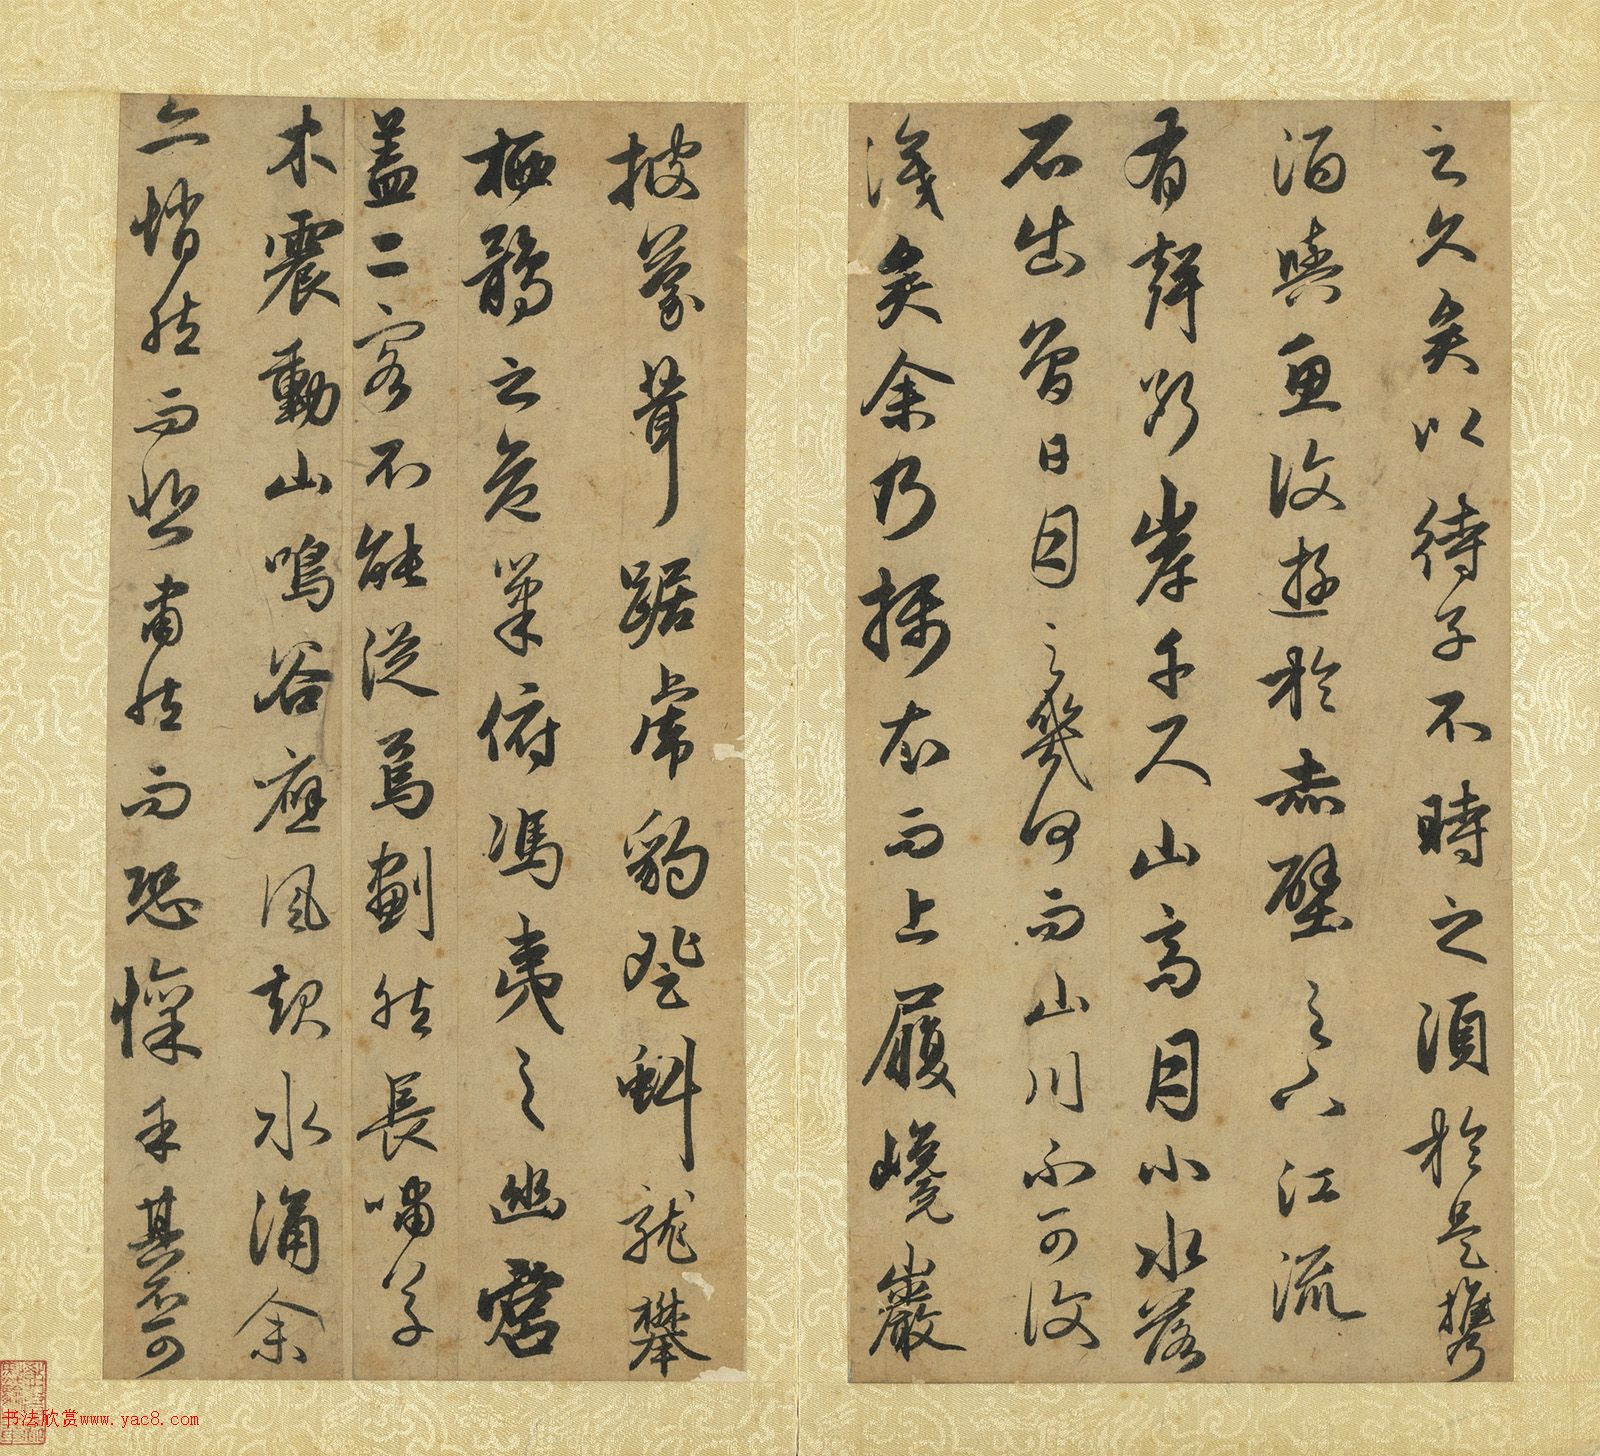 之久矣以待子不時之須於是攜
酒與魚復遊於赤壁之下江流
有聲斷岸千尺山高月小水落
石出曾日月之幾何而山川不可復
識矣余乃攝衣而上履巉巖
披蒙茸踞虎豹登虯龍攀
栖鶻之危巢俯馮夷之幽宮
蓋二客不能從焉劃然長嘯草
木震動山鳴谷應風起水涌余
亦悄然而悲肅然而恐懍乎其不可
书法欣赏www.yac8.com